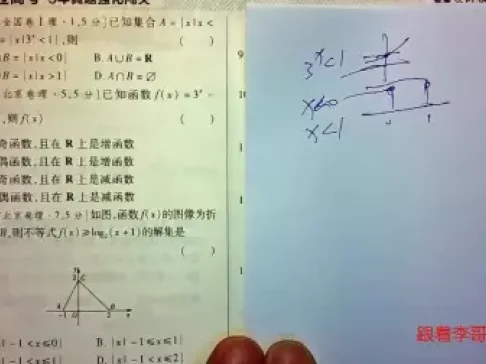 全国卷Ⅰ理·1,5分]已知集合A={x|x<
={x|3ˣ<1},则 ( )
B={x|x<0} B. A∪B=R
B={x|x>1} D. A∩B=∅
北京卷理·5,5分]已知函数f(x)=3ˣ-
,则f(x) ( )
奇函数,且在R上是增函数
偶函数,且在R上是增函数
奇函数,且在R上是减函数
偶函数,且在R上是减函数
北京卷理·7,5分]如图,函数f(x)的图像为折
B,则不等式f(x)≥log₂(x+1)的解集是
( )
2 C
A B
-1 O 2 x
|-1<x≤0} B. {x|-1≤x≤1}
|-1<x≤1} D. {x|-1<x≤2}
9
10
1
1
3ˣ<1
x<0
x<1
0 1
跟着李哥